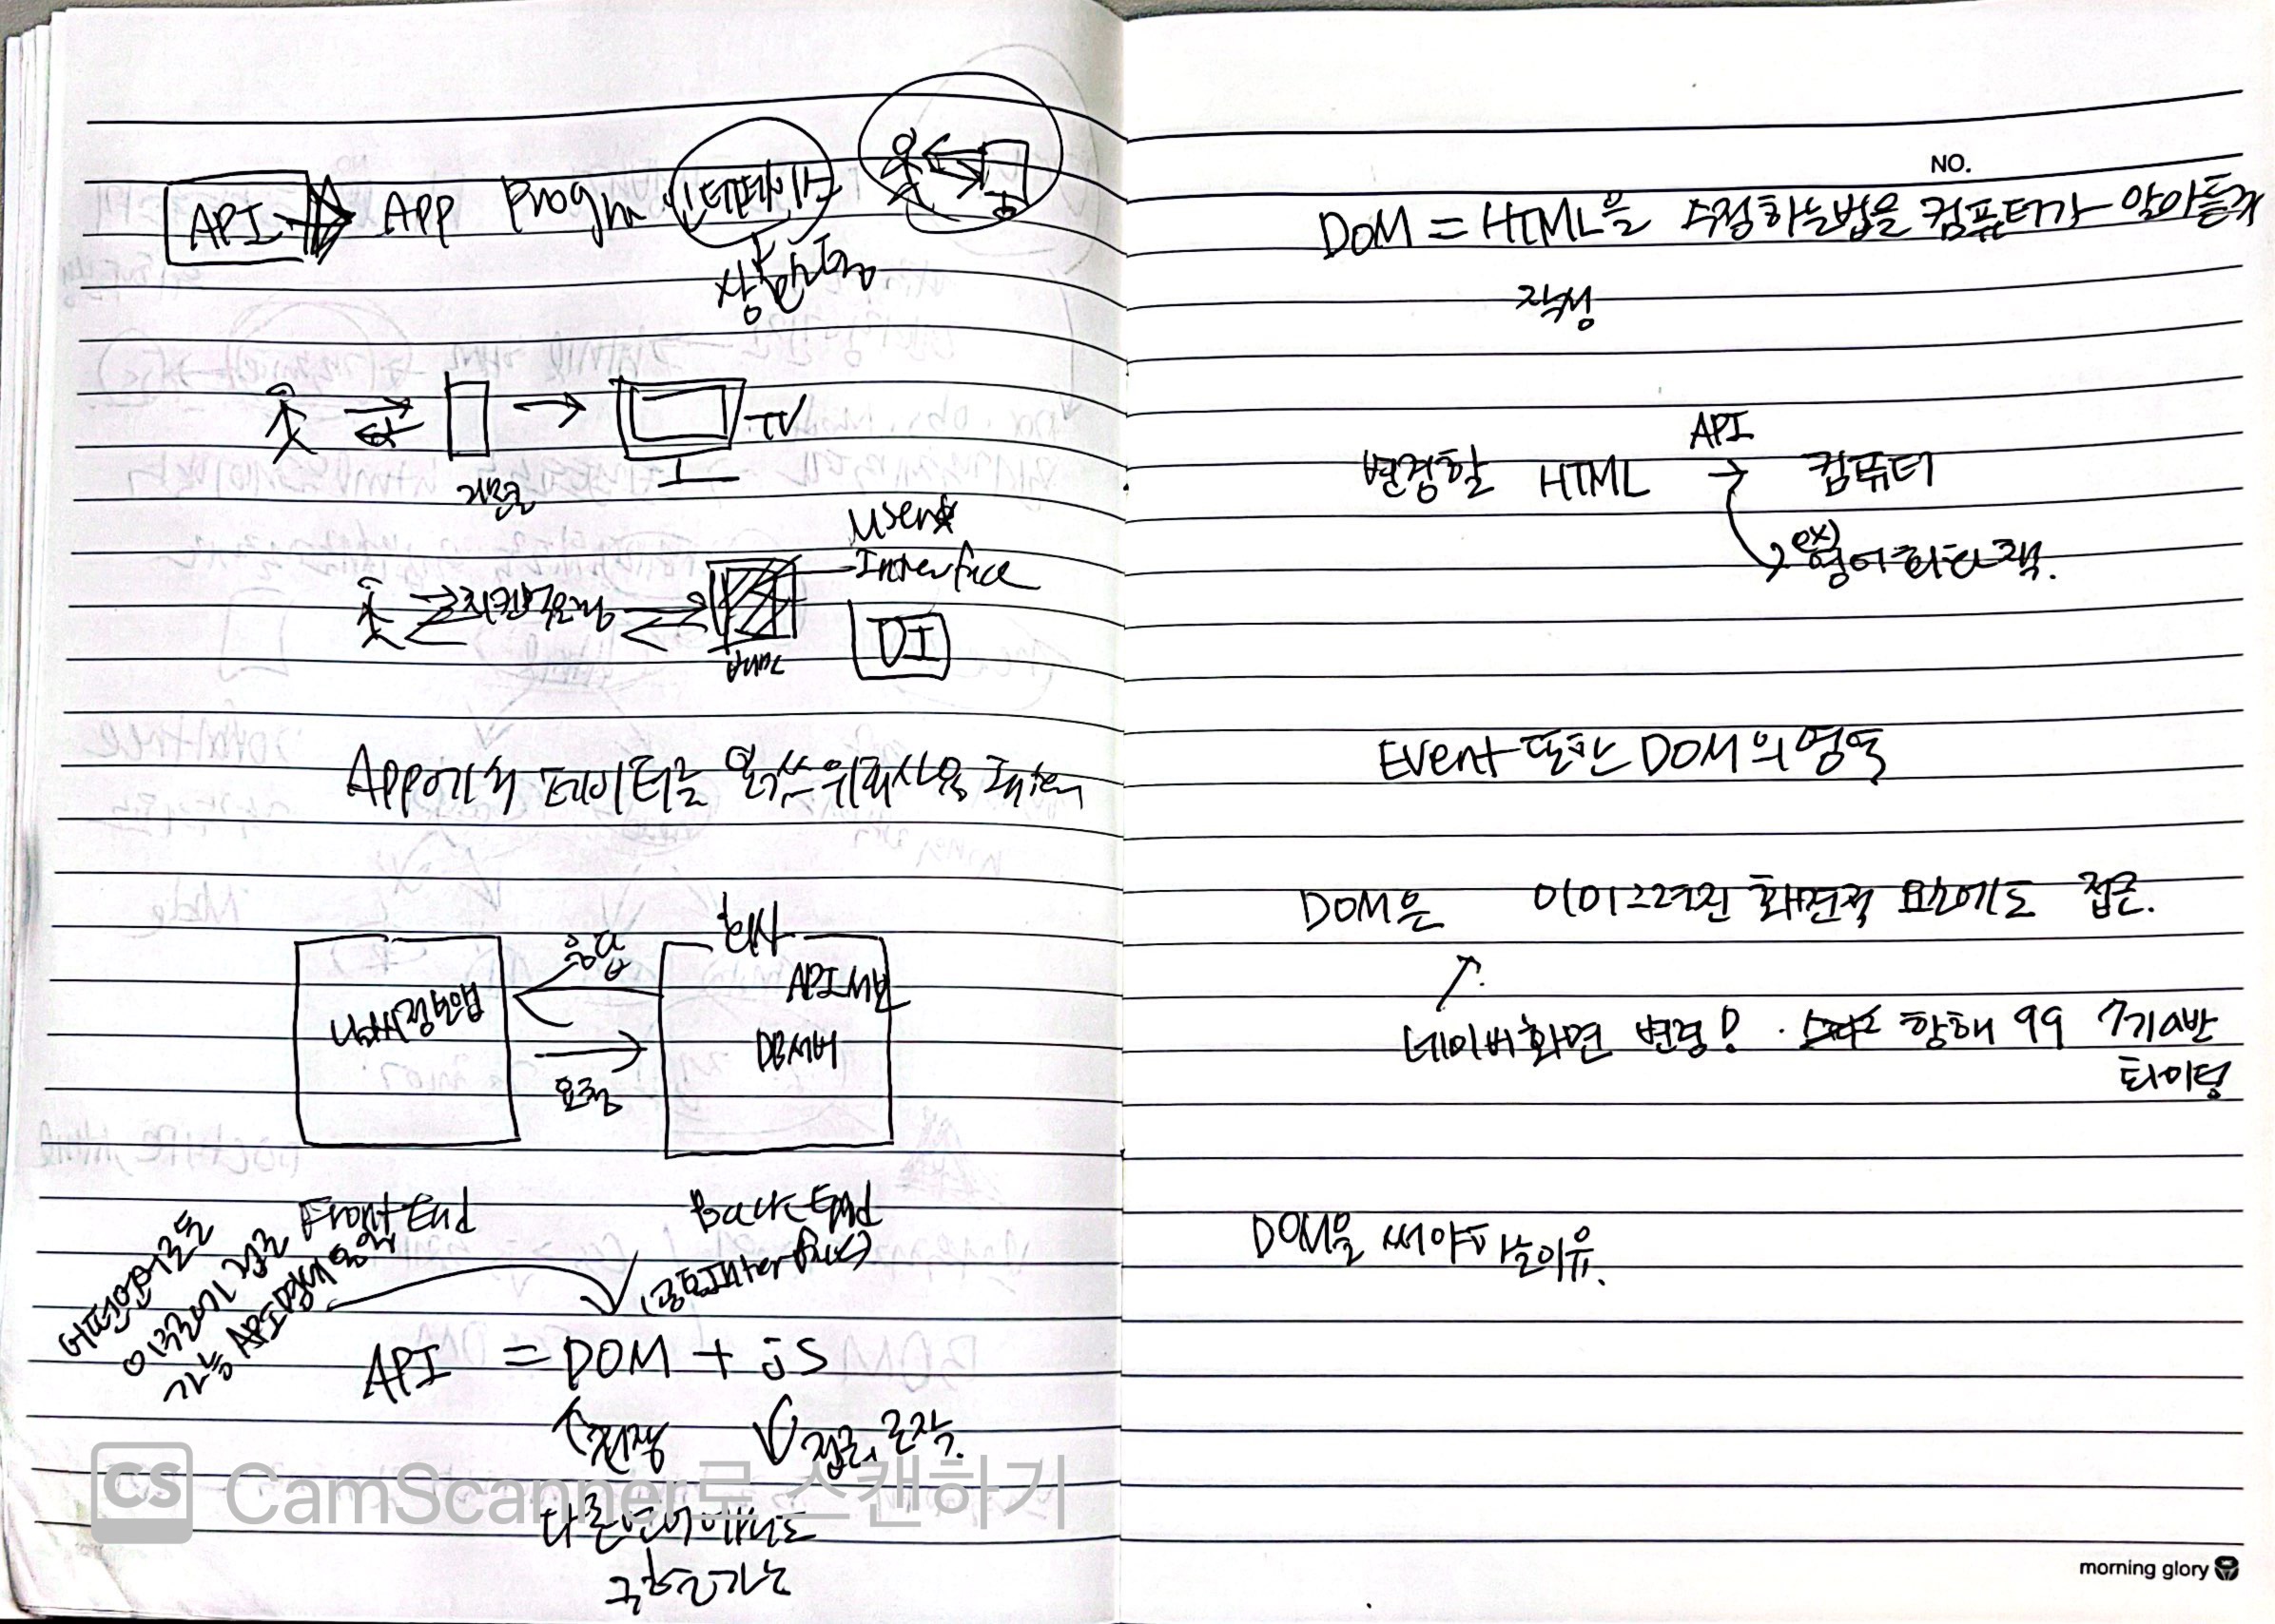 API → APP Progrm 인터페이스
상호작용
TV
리모컨
User
Interface
UI
App에서 데이터를
회사
응답
API 서버
날씨정보앱
DB서버
요청
Front End
Back End
어떤언어로든
이루어기 접근
가능 API
API = DOM + JS
접근, 조작.
다른언어에서도
구현가능
CS CamScanner로 스캔하기
NO.
DOM = HTML을 수정하는법을 컴퓨터가 알아듣게
작성
API
변경할 HTML → 컴퓨터
ex)
영어 회화 책.
Event 또한 DOM의 영역
DOM은 이미그려진 화면적 요소에도 접근.
네이버화면 변경! 항해 99 7기 a반
화이팅
DOM을 써야하는이유.
morning glory